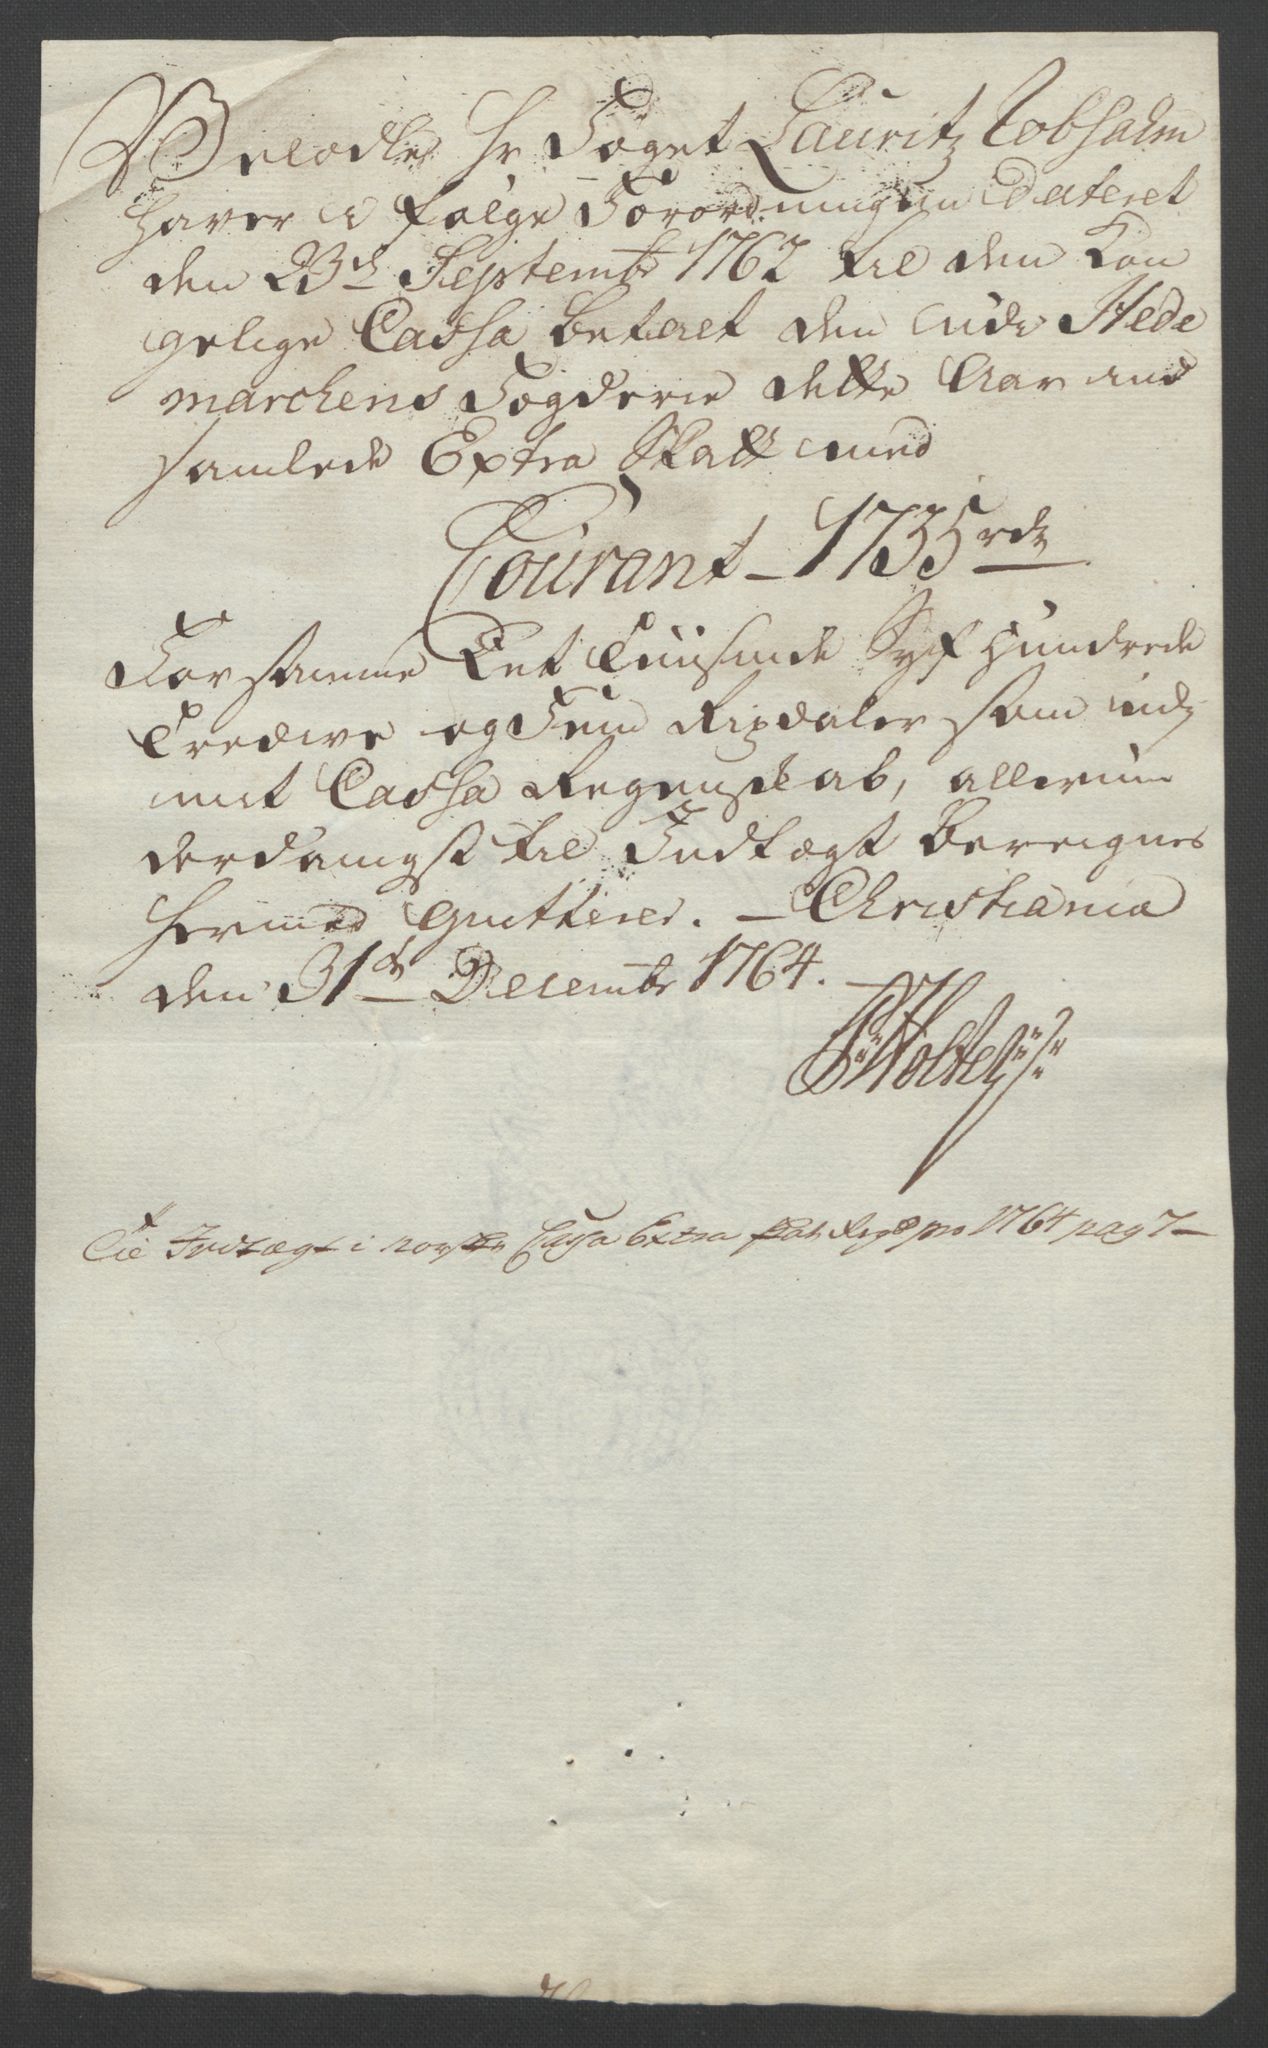 Velædle Hr Foget Lauritz Robsahm
haver i følge Forordningen Dateret
den 23d Septembr 1762 til den Kon
gelige Cassa betalt den udi Hede
marchens Fogderie dette Aar ind
samlede Extra Skatt med
Courant – 1735 rdr
For samme Eet Tuusinde Syf Hundrede
Tredive og Fem Rixdaler som udj
mit Cassa Regenskab, allerun
derdanigst til Indtægt Bereignes
hermed qvitterer. – Christiania
den 31de Decembr 1764. –
Holte
Til Indtægt i norske Cassa Extra skat Regsk pro 1764 pag 7 –